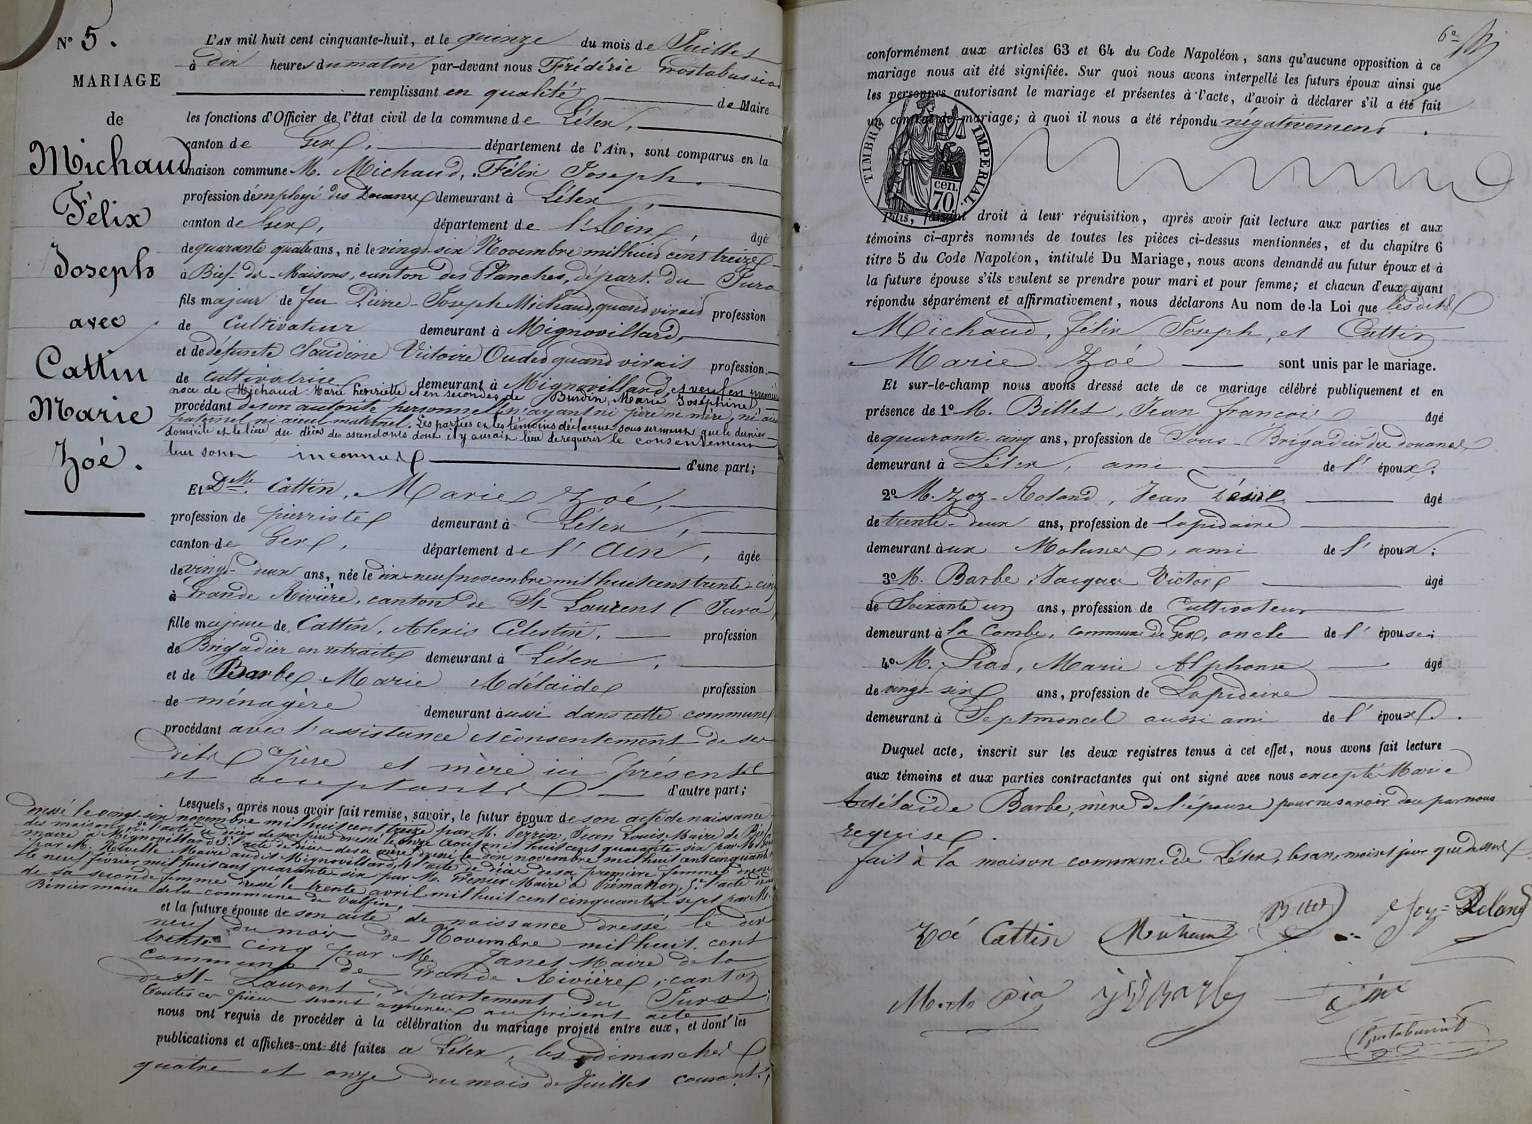 N° 5.
MARIAGE
de
Michaud
Félix
Joseph
avec
Cattin
Marie
Zoé.
L'AN mil huit cent cinquante-huit, et le quinze du mois de Juillet
à dix heures du matin par-devant nous Frédéric Grostabussiat
remplissant en qualité de Maire
les fonctions d'Officier de l'état civil de la commune de Lélex,
canton de Gex, département de l'Ain, sont comparus en la
maison commune M. Michaud, Félix Joseph
profession d'employé des Douanes demeurant à Lélex,
canton de Gex, département de l'Ain, âgé
de quarante quatre ans, né le vingt-six Novembre mil huit cent treize
à Bief-des-Maisons, canton des Planches, départ. du Jura
fils majeur de feu Pierre-Joseph Michaud, quand vivait profession
de Cultivateur demeurant à Mignovillard,
et de défunte Claudine Victoire Oudet quand vivait profession
de cultivatrice demeurant à Mignovillard, et veuf en premières
noces de Michaud Marie henriette et en secondes de Burdin, Marie Joséphine
procédant de son autorité personnelle n'ayant ni père ni mère, ni aïeul
paternel ni aïeul maternel. Les parties et les témoins déclarent sous serment que le dernier
domicile et le lieu du décès des ascendants dont il y aurait lieu de requérir le consentement
leur sont inconnus d'une part;
Et Dlle. Cattin, Marie Zoé,
profession de pierriste demeurant à Lélex,
canton de Gex, département de l'Ain, âgée
de vingt-deux ans, née le dix-neuf novembre mil huit cent trente-cinq
à Grande Rivière, canton de St-Laurent (Jura)
fille majeure de Cattin, Alexis Célestin, profession
de Brigadier en retraite demeurant à Lélex,
et de Barbe Marie Adélaïde profession
de ménagère demeurant aussi dans cette commune
procédant avec l'assistance et consentement de ses
dits père et mère ici présents
et acceptants d'autre part;
Lesquels, après nous avoir fait remise, savoir, le futur époux de son acte de naissance
dressé le vingt-six novembre mil huit cent treize par M. Perrin, Jean Louis, Maire de Bief
des maisons, 2° l'acte de décès de son père dressé le onze Août mil huit cent quarante-six par M.
maire à Mignovillard 3° l'acte de décès de sa mère dressé le dix novembre mil huit cent cinquante
par M. Maire audit Mignovillard, 4° l'acte de décès de sa première femme dressé
le neuf février mil huit cent quarante six par M. Grenier Maire à Prémanon, 5° l'acte de décès
de sa seconde femme dressé le trente avril mil huit cent cinquante-sept par M.
Bénier maire de la commune de Vulfin,
et la future épouse de son acte de naissance dressé le dix
neuf du mois de Novembre mil huit cent
trente cinq par M. Janet Maire de la
commune de Grande Rivière, canton
de St-Laurent, département du Jura;
toutes ces pièces seront annexées au présent acte
nous ont requis de procéder à la célébration du mariage projeté entre eux, et dont les
publications et affiches ont été faites à Lélex, les dimanches
quatre et onze du mois de Juillet courant,
6e
conformément aux articles 63 et 64 du Code Napoléon, sans qu'aucune opposition à ce
mariage nous ait été signifiée. Sur quoi nous avons interpellé les futurs époux ainsi que
les personnes autorisant le mariage et présentes à l'acte, d'avoir à déclarer s'il a été fait
un contrat de mariage; à quoi il nous a été répondu négativement.
TIMBRE IMPÉRIAL
70 cen.
Puis, faisant droit à leur réquisition, après avoir fait lecture aux parties et aux
témoins ci-après nommés de toutes les pièces ci-dessus mentionnées, et du chapitre 6
titre 5 du Code Napoléon, intitulé Du Mariage, nous avons demandé au futur époux et à
la future épouse s'ils veulent se prendre pour mari et pour femme; et chacun d'eux ayant
répondu séparément et affirmativement, nous déclarons Au nom de la Loi que lesdits
Michaud, Félix Joseph, et Cattin
Marie Zoé sont unis par le mariage.
Et sur-le-champ nous avons dressé acte de ce mariage célébré publiquement et en
présence de 1° M. Billet, Jean François âgé
de quarante-cinq ans, profession de Sous-Brigadier des douanes
demeurant à Lélex, ami de l'époux;
2° M. Joz-Roland, Jean Désiré âgé
de trente-deux ans, profession de Lapidaire
demeurant aux Molunes, ami de l'époux;
3° M. Barbe, Jacques Victor âgé
de Soixante un ans, profession de Cultivateur
demeurant à la Combe, commune de Gex, oncle de l'épouse;
4° M. Piad, Marie Alphonse âgé
de vingt six ans, profession de Lapidaire
demeurant à Septmoncel aussi ami de l'époux.
Duquel acte, inscrit sur les deux registres tenus à cet effet, nous avons fait lecture
aux témoins et aux parties contractantes qui ont signé avec nous excepté Marie
Adélaïde Barbe, mère de l'épouse pour ne savoir de ce par nous
requise.
fait à la maison commune de Lélex, les an, mois et jour que dessus
Zoé Cattin Michaud Billet Joz-Roland